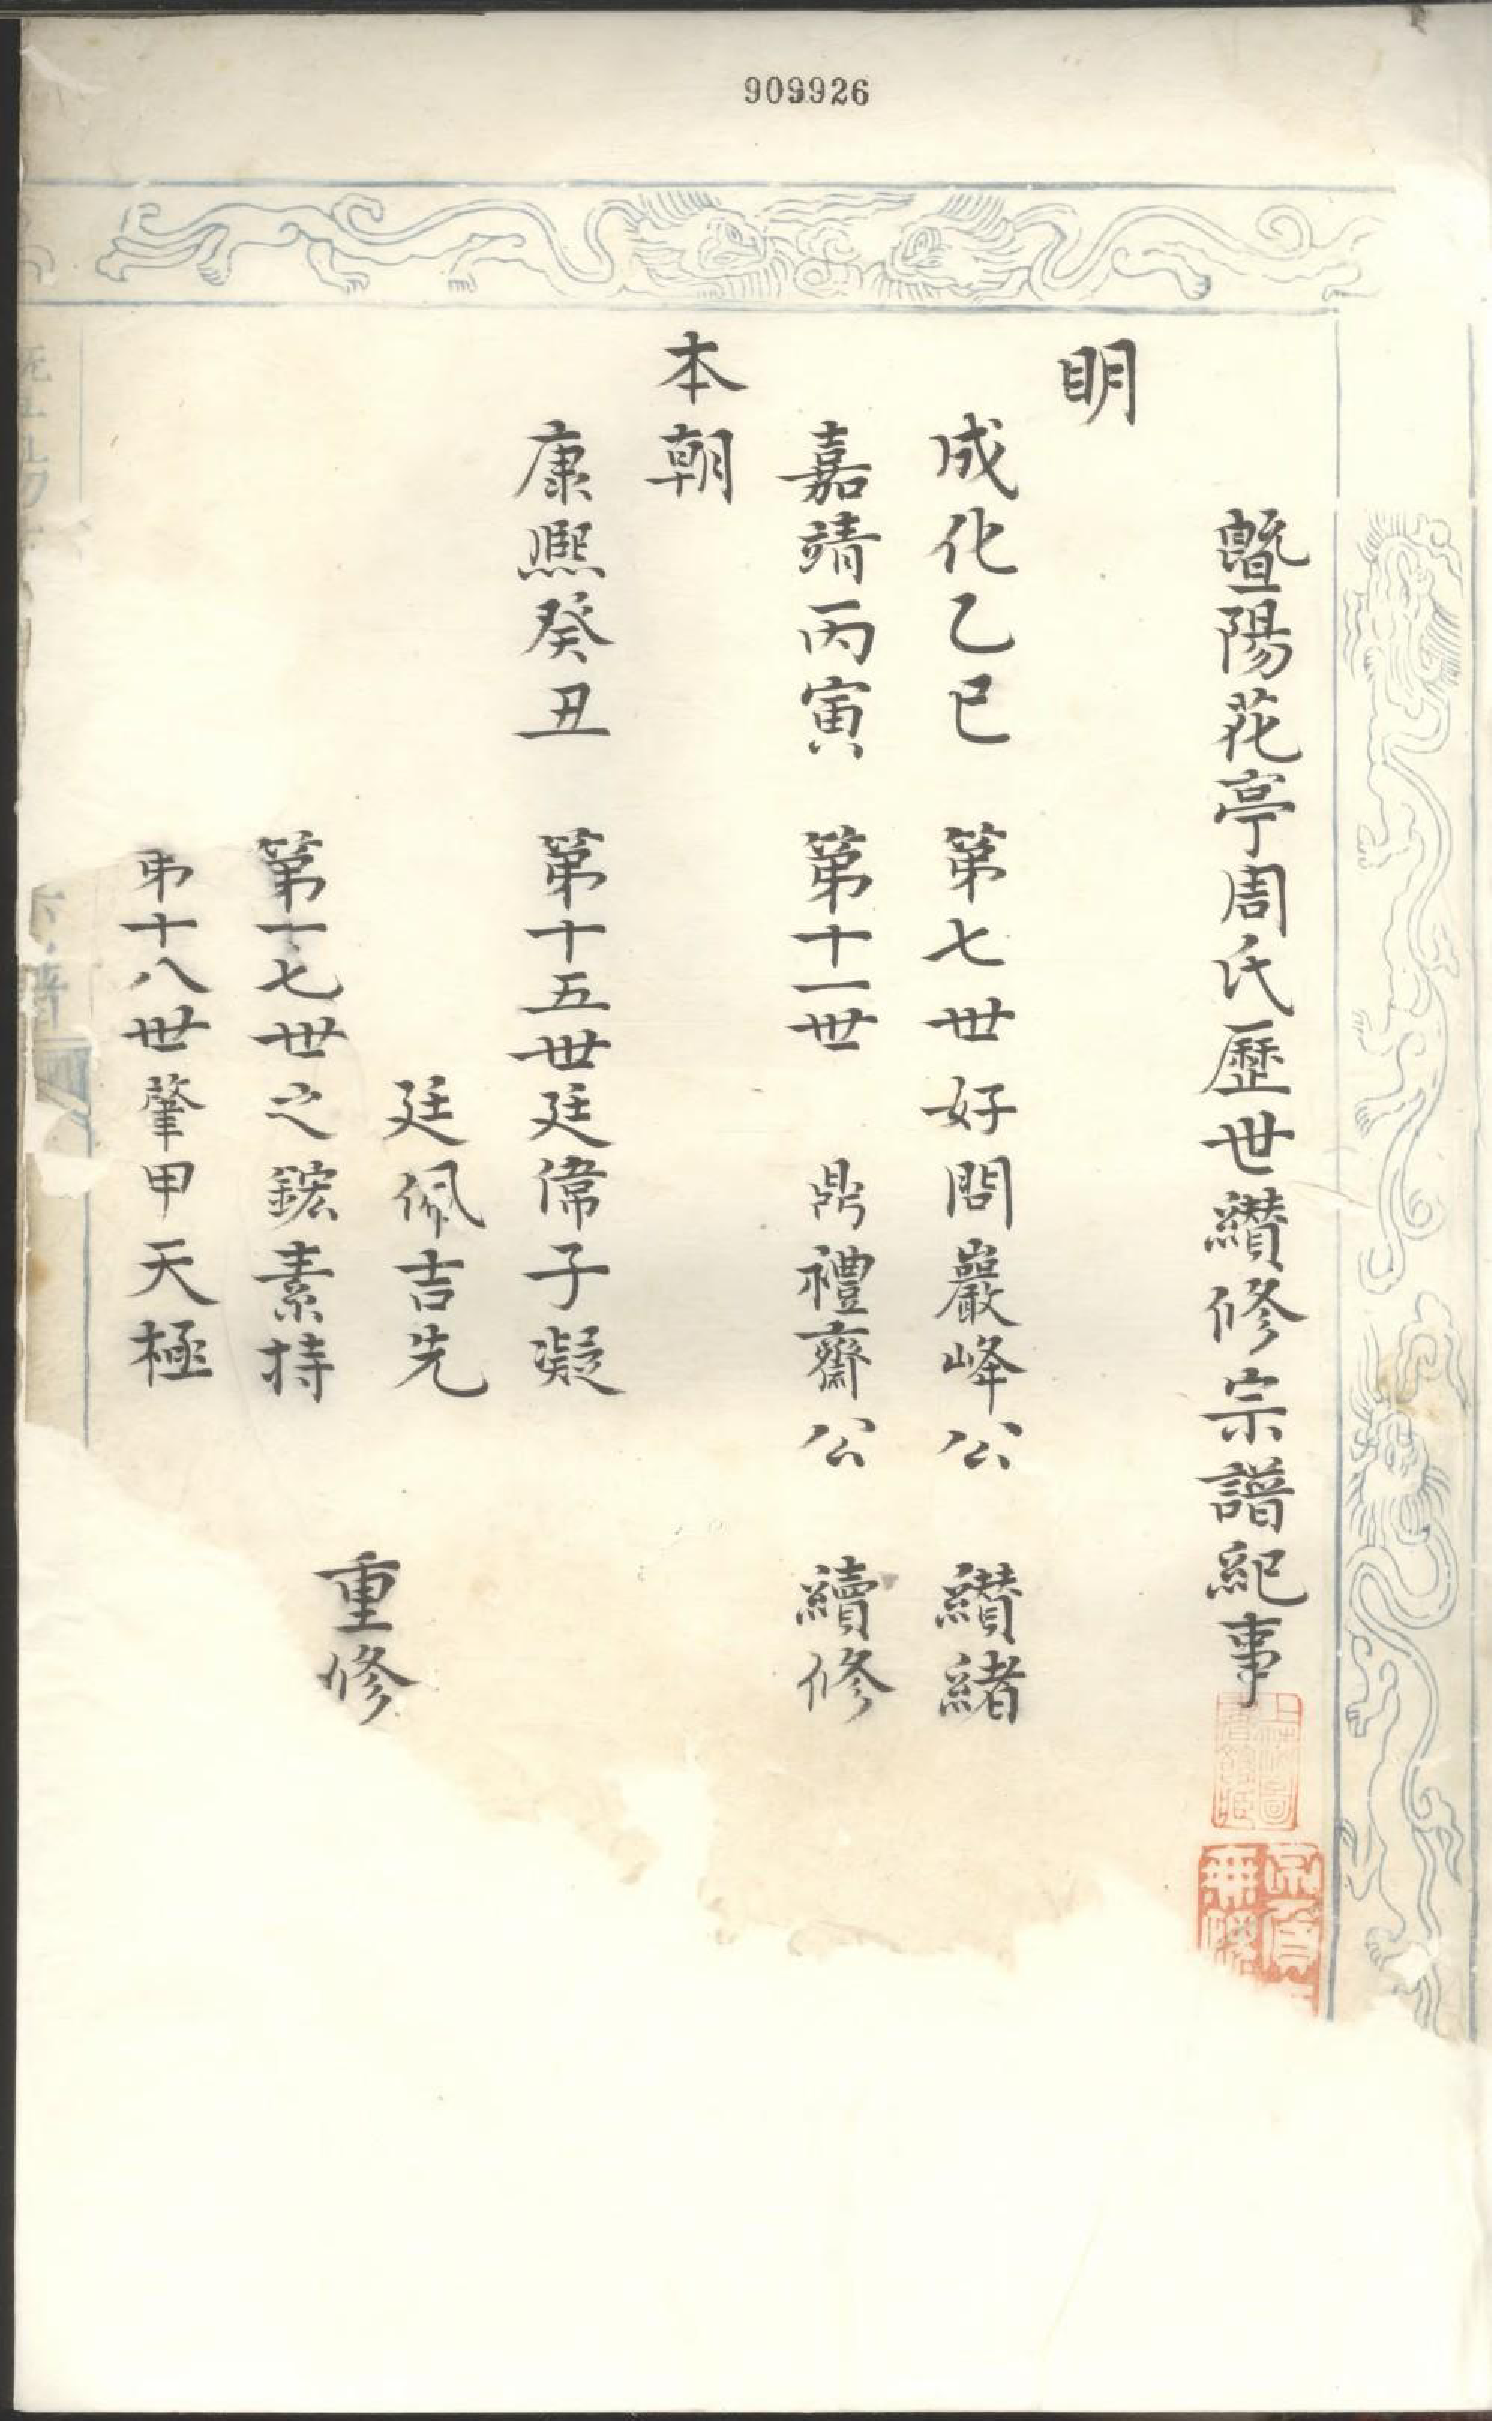 909926
暨陽花亭周氏歷世纘修宗譜紀事
明
成化乙巳 第七世好問巖峰公 纘緒
嘉靖丙寅 第十一世 鼎禮齋公 續修
本朝
康熙癸丑 第十五世廷偉子凝
廷佩吉先
第十七世之鋐素持
重修
弟十八世肇甲天極